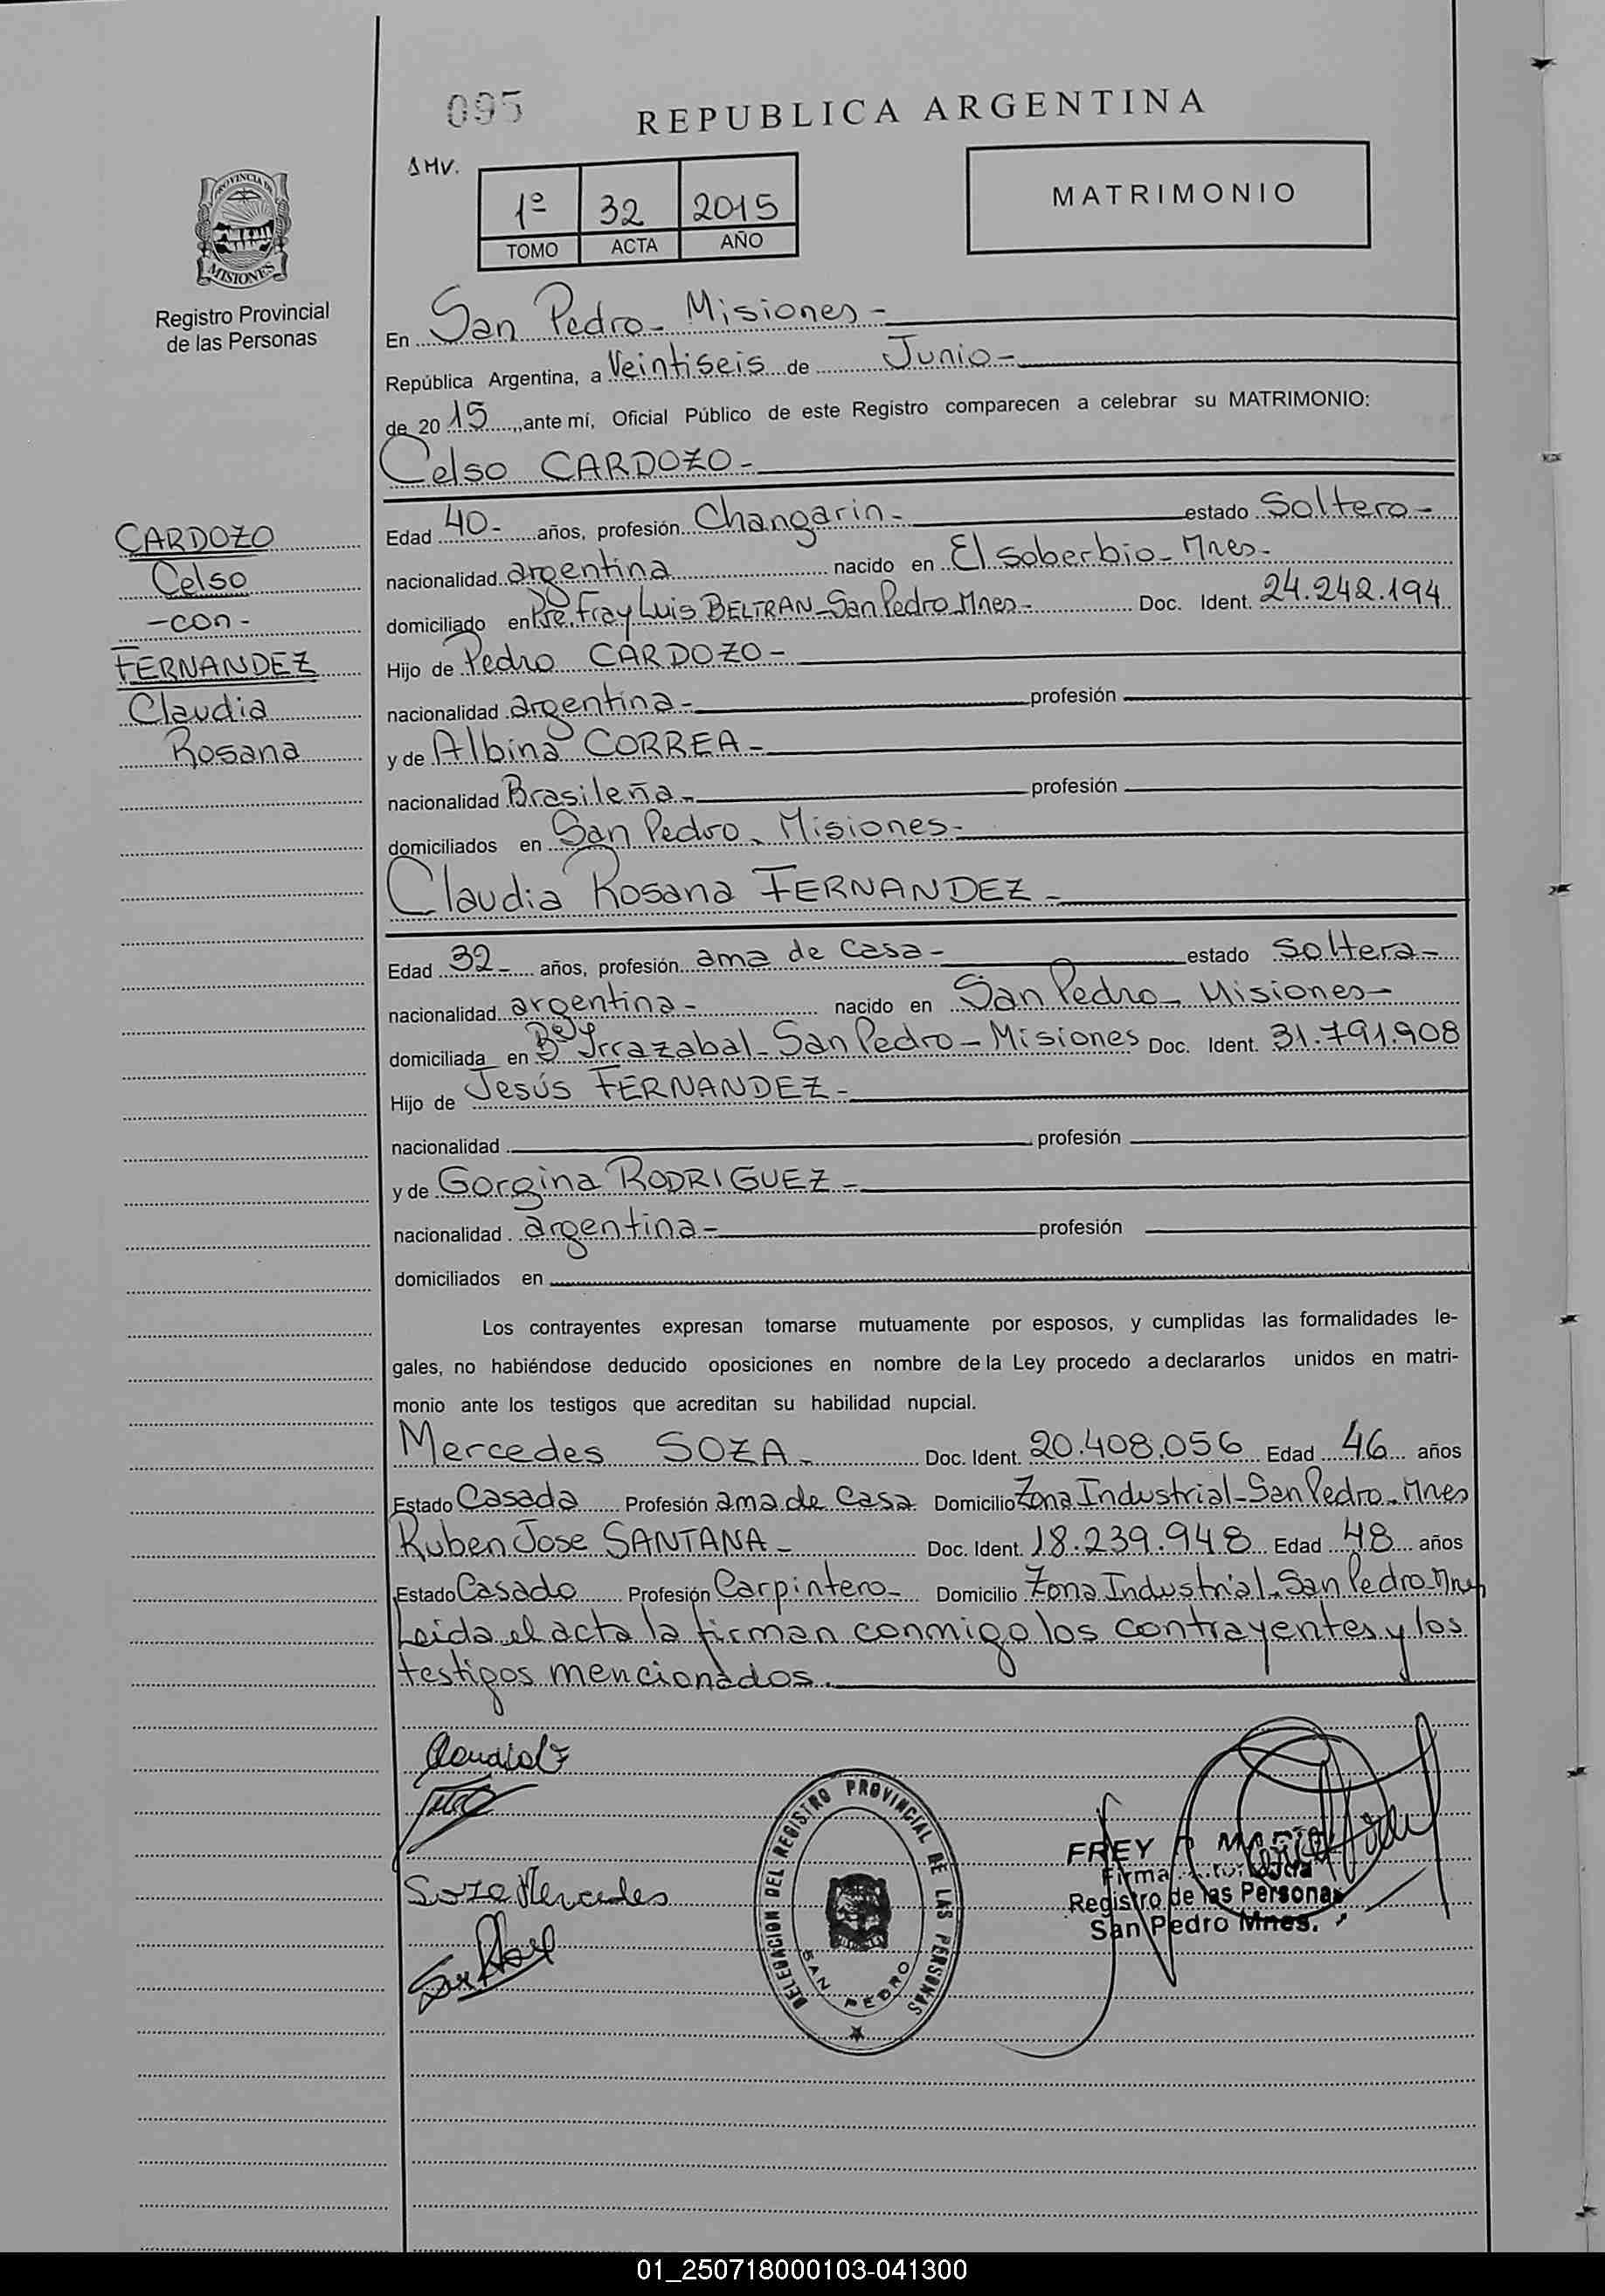 095
REPUBLICA ARGENTINA
1º 32 2015
TOMO ACTA AÑO
MATRIMONIO
PROVINCIA DE
MISIONES
Registro Provincial
de las Personas
CARDOZO
Celso
-con-
FERNANDEZ
Claudia
Rosana
En San Pedro - Misiones -
República Argentina, a Veintiseis de Junio -
de 2015, ante mí, Oficial Público de este Registro comparecen a celebrar su MATRIMONIO:
Celso CARDOZO -
Edad 40- años, profesión Changarin - estado Soltero -
nacionalidad argentina nacido en El soberbio - Mnes -
domiciliado en Fray Luis BELTRAN - San Pedro Mnes - Doc. Ident. 24.242.194
Hijo de Pedro CARDOZO -
nacionalidad argentina - profesión
y de Albina CORREA -
nacionalidad Brasileña - profesión
domiciliados en San Pedro - Misiones -
Claudia Rosana FERNANDEZ -
Edad 32- años, profesión ama de casa - estado soltera -
nacionalidad argentina - nacido en San Pedro - Misiones -
domiciliada en Bº Irrazabal - San Pedro - Misiones Doc. Ident. 31.791.908
Hijo de Jesús FERNANDEZ -
nacionalidad profesión
y de Gorgina RODRIGUEZ -
nacionalidad argentina - profesión
domiciliados en
Los contrayentes expresan tomarse mutuamente por esposos, y cumplidas las formalidades le-
gales, no habiéndose deducido oposiciones en nombre de la Ley procedo a declararlos unidos en matri-
monio ante los testigos que acreditan su habilidad nupcial.
Mercedes SOZA - Doc. Ident. 20.408.056 Edad 46 años
Estado Casada Profesión ama de casa Domicilio Zona Industrial - San Pedro - Mnes
Ruben Jose SANTANA - Doc. Ident. 18.239.948 Edad 48 años
Estado Casado Profesión Carpintero - Domicilio Zona Industrial - San Pedro - Mnes
Leida el acta la firman conmigo los contrayentes y los
testigos mencionados.
Soza Mercedes
DELEGACION DEL REGISTRO PROVINCIAL DE LAS PERSONAS
SAN PEDRO
FREY
Firma
Registro de las Personas
San Pedro Mnes.
01_250718000103-041300